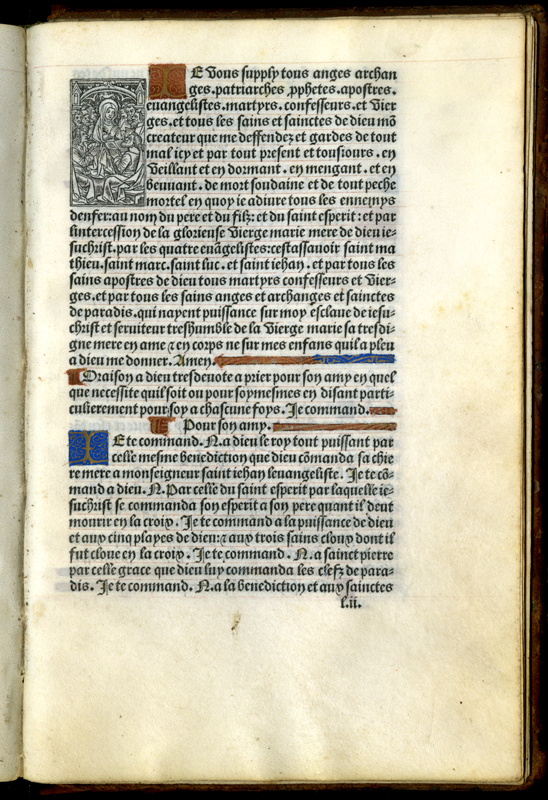 IE vous supply tous anges archan
ges.patriarches ꝓphetes.apostres.
euangelistes.martyrs.confesseurs.et vier
ges.et tous les sains et sainctes de dieu mõ
createur que me deffendez et gardes de tout
mal icy et par tout present et tousiours.en
veillant et en dormant.en mengant.et en
beuuant.de mort soudaine et de tout peche
mortel en quoy ie adiure tous les ennemys
denfer:au nom du pere et du filz:et du saint esperit:et par
lintercession de la glorieuse vierge marie mere de dieu ie-
suchrist.par les quatre euãgelistes:cestassauoir saint ma
thieu.saint marc.saint luc.et saint iehan.et par tous les
sains apostres de dieu tous martyrs confesseurs et vier-
ges.et par tous les sains anges et archanges et sainctes
de paradis.qui nayent puissance sur moy esclaue de iesu-
christ et seruiteur treshumble de la vierge marie sa tresdi-
gne mere en ame ⁊ en corps ne sur mes enfans quil a pleu
a dieu me donner. Amen.
Oraison a dieu tresdeuote a prier pour son amy en quel
que necessite quil soit ou pour soymesmes en disant parti-
culierement pour soy a chascune foys. Je command.
Pour son amy.
IE te command.N.a dieu le roy tout puissant par
celle mesme benediction que dieu cõmanda sa chie
re mere a monseigneur saint iehan leuangeliste. Je te cõ-
mand a dieu.N.Par celle du saint esperit par laquelle ie-
suchrist se commanda son esperit a son pere quant il deut
mourir en la croix. Je te command a la puissance de dieu
et aux cinq playes de dieu:⁊ aux trois sains cloux dont il
fut cloue en la croix. Je te command.N.a sainct pierre
par celle grace que dieu luy commanda les clefz de para-
dis. Je te command.N.a la benediction et aux sainctes
l.ii.